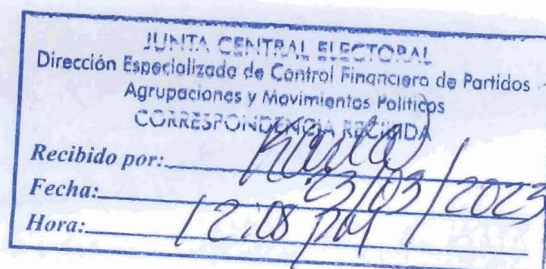 JUNTA CENTRAL ELECTORAL
Dirección Especializada de Control Financiero de Partidos
Agrupaciones y Movimientos Políticos
CORRESPONDENCIA RECIBIDA
Recibido por:
Fecha: 23/03/2023
Hora: 12:08 PM